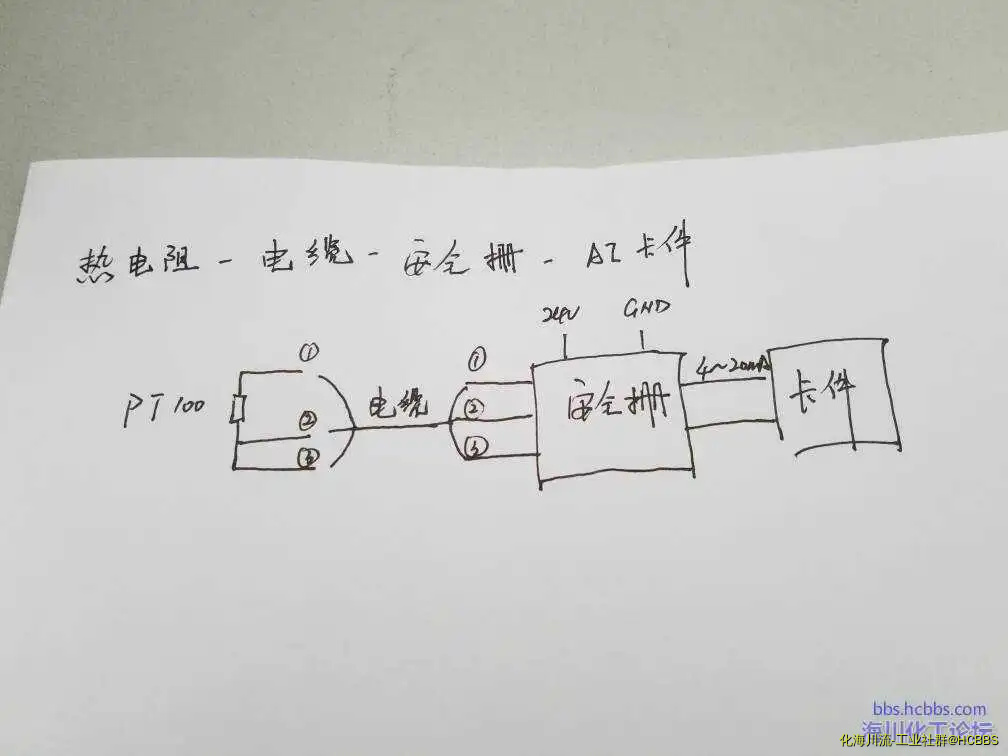 热电阻 - 电缆 - 安全栅 - AI 卡件
24V GND
PT100 ① ② ③ 电缆 ① ② ③ 安全栅 4~20mA 卡件
bbs.hcbbs.com
海川化工论坛
化海川流-工业社群@HCBBS